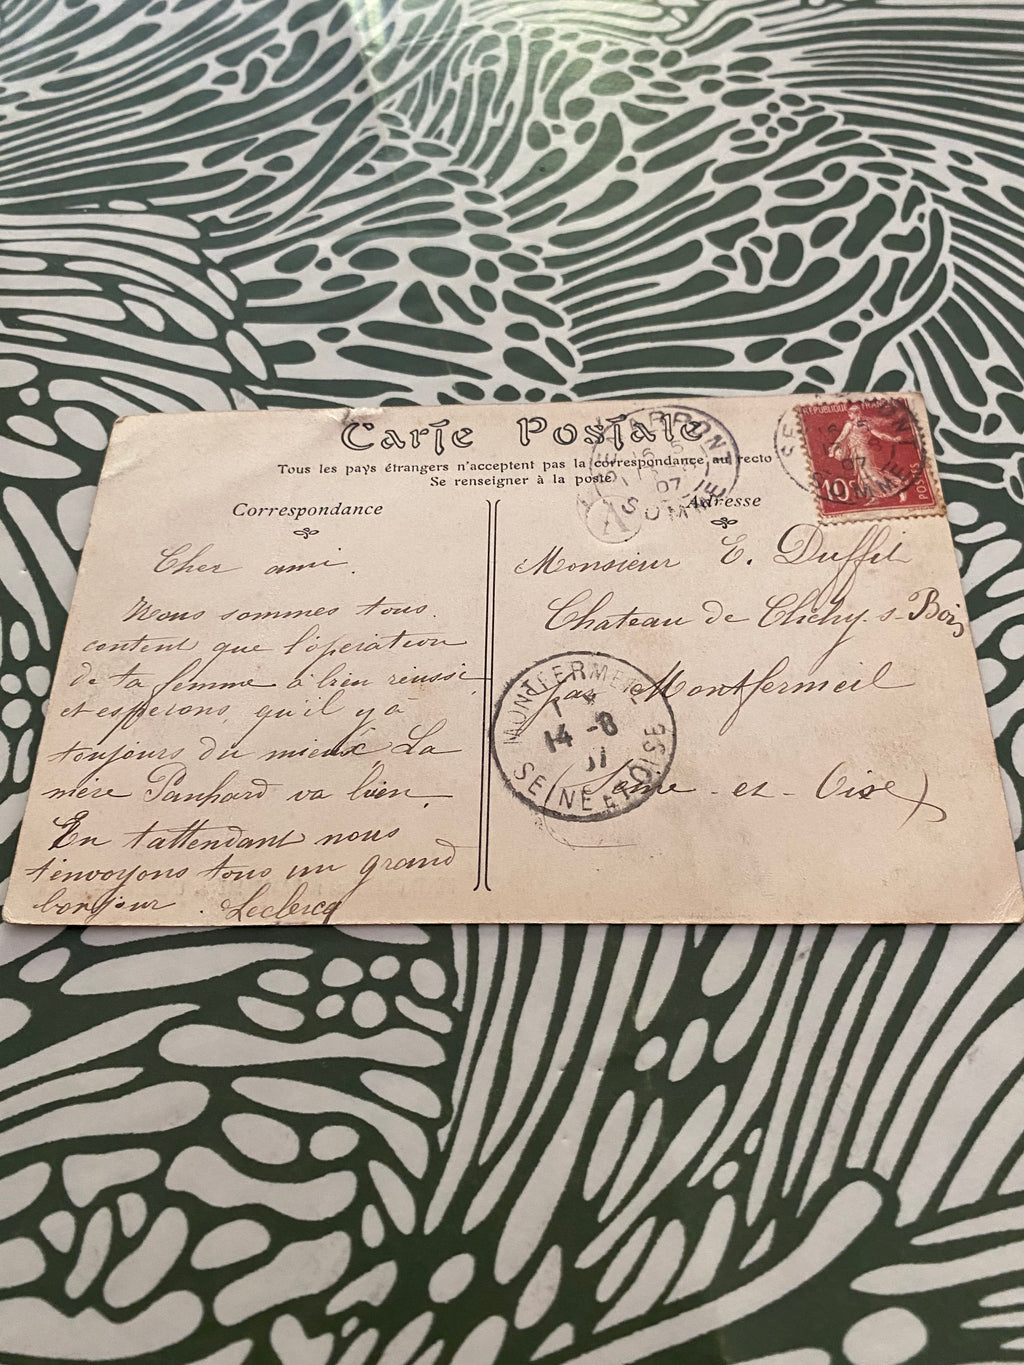 Carte Postale
Tous les pays étrangers n'acceptent pas la correspondance au recto
Se renseigner à la poste
Correspondance
Adresse
Cher ami.
Nous sommes tous
content que l'opération
de ta femme à bien réussi
et esperons qu'il y à
toujours du mieux La
mère Panhard va bien.
En t'attendant nous
t'envoyons tous un grand
bonjour. Leclercq
Monsieur E. Duffit
Chateau de Clichy-s-Bois
par Montfermeil
(Seine-et-Oise)
RÉPUBLIQUE FRANÇAISE
10c
POSTES
SOMME
07
A
SOMME
07
MONTFERMEIL
14 -8
07
SEINE ET OISE